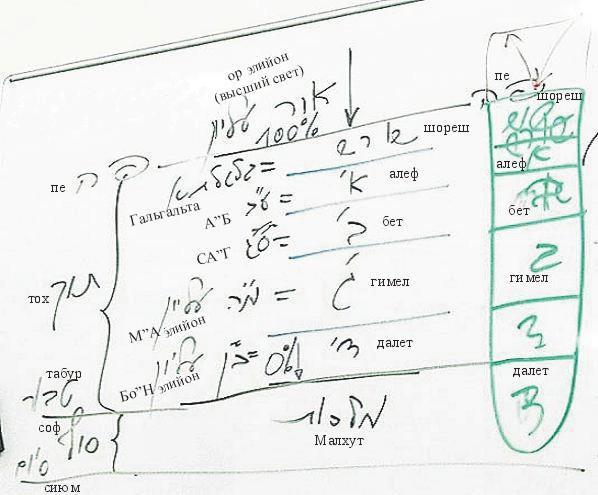 ор элийон
(высший свет)
אור עליון
100%
пе
פה
шореш
пе
פה
שורש
шореш
Гальгальта
גלגלתא =
א'
алеф
алеф
А"Б
ע"ב =
бет
СА"Г
ס"ג =
ב'
бет
тох
תוך
М"А элийон
מ"ה עליון =
ג'
гимел
гимел
ג
Бо"Н элийон
ב"ן עליון =
0%
ד'
далет
далет
ד
табур
טבור
соф
סוף
מלכות
Малхут
סיום
сиюм